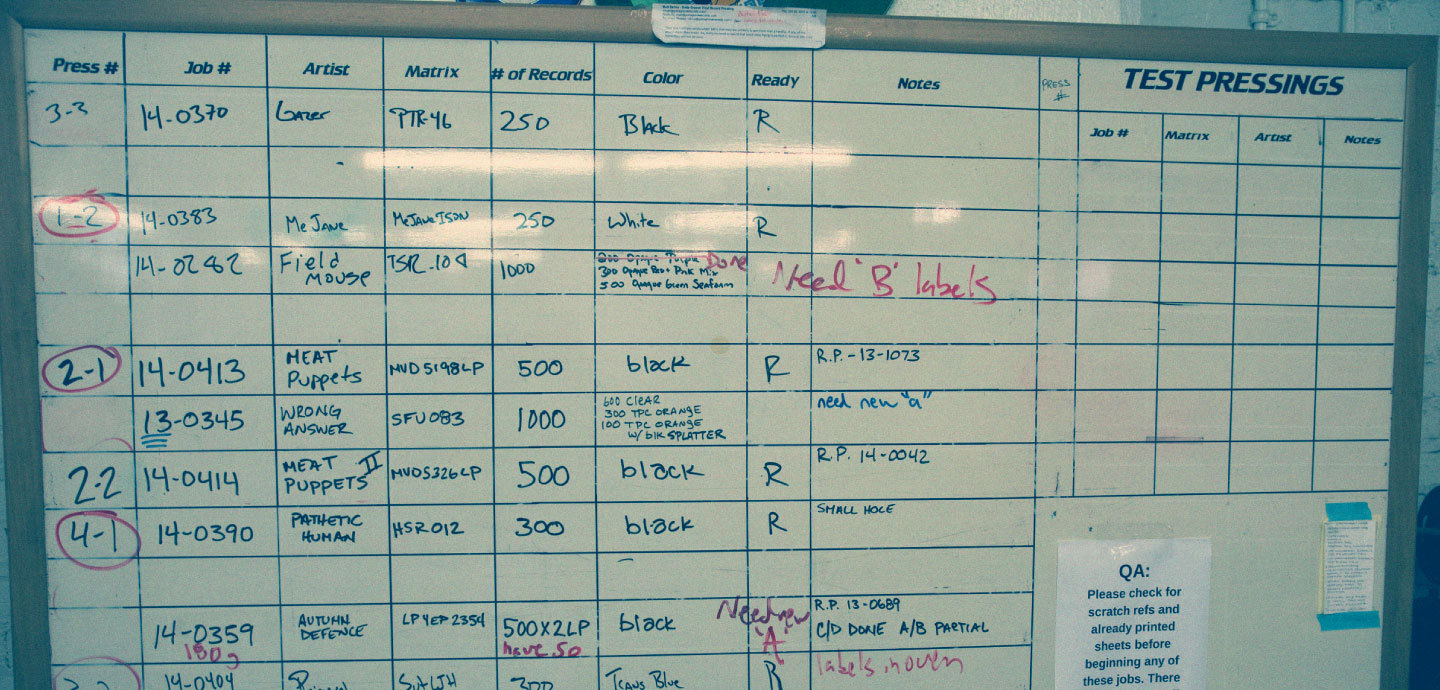 Press # Job # Artist Matrix # of Records Color Ready Notes PRESS # TEST PRESSINGS
Job # Matrix Artist Notes
3-3 14-0370 Gazer PTR-46 250 Black R
1-2 14-0383 MeJane MeJaneISON 250 White R
14-0282 Field Mouse TSR-108 1000 Done Need "B" labels
300 Opaque Red + Pink Mix
500 Opaque Green Seafoam
2-1 14-0413 MEAT Puppets MVD5198LP 500 black R R.P.-13-1073
13-0345 WRONG ANSWER SFU083 1000 600 CLEAR need new "a"
300 TPC ORANGE
100 TPC ORANGE
W/ blk SPLATTER
2-2 14-0414 MEAT PUPPETS II MVD5326LP 500 black R R.P. 14-0042
4-1 14-0390 PATHETIC HUMAN HSR012 300 black R SMALL HOLE
14-0359 AUTUMN DEFENCE LPYEP2354 500X2LP black Need new "A" R.P. 13-0689
180g have 50 C/D DONE A/B PARTIAL
14-0404 300 Trans Blue R labels in oven
QA:
Please check for
scratch refs and
already printed
sheets before
beginning any of
these jobs. There